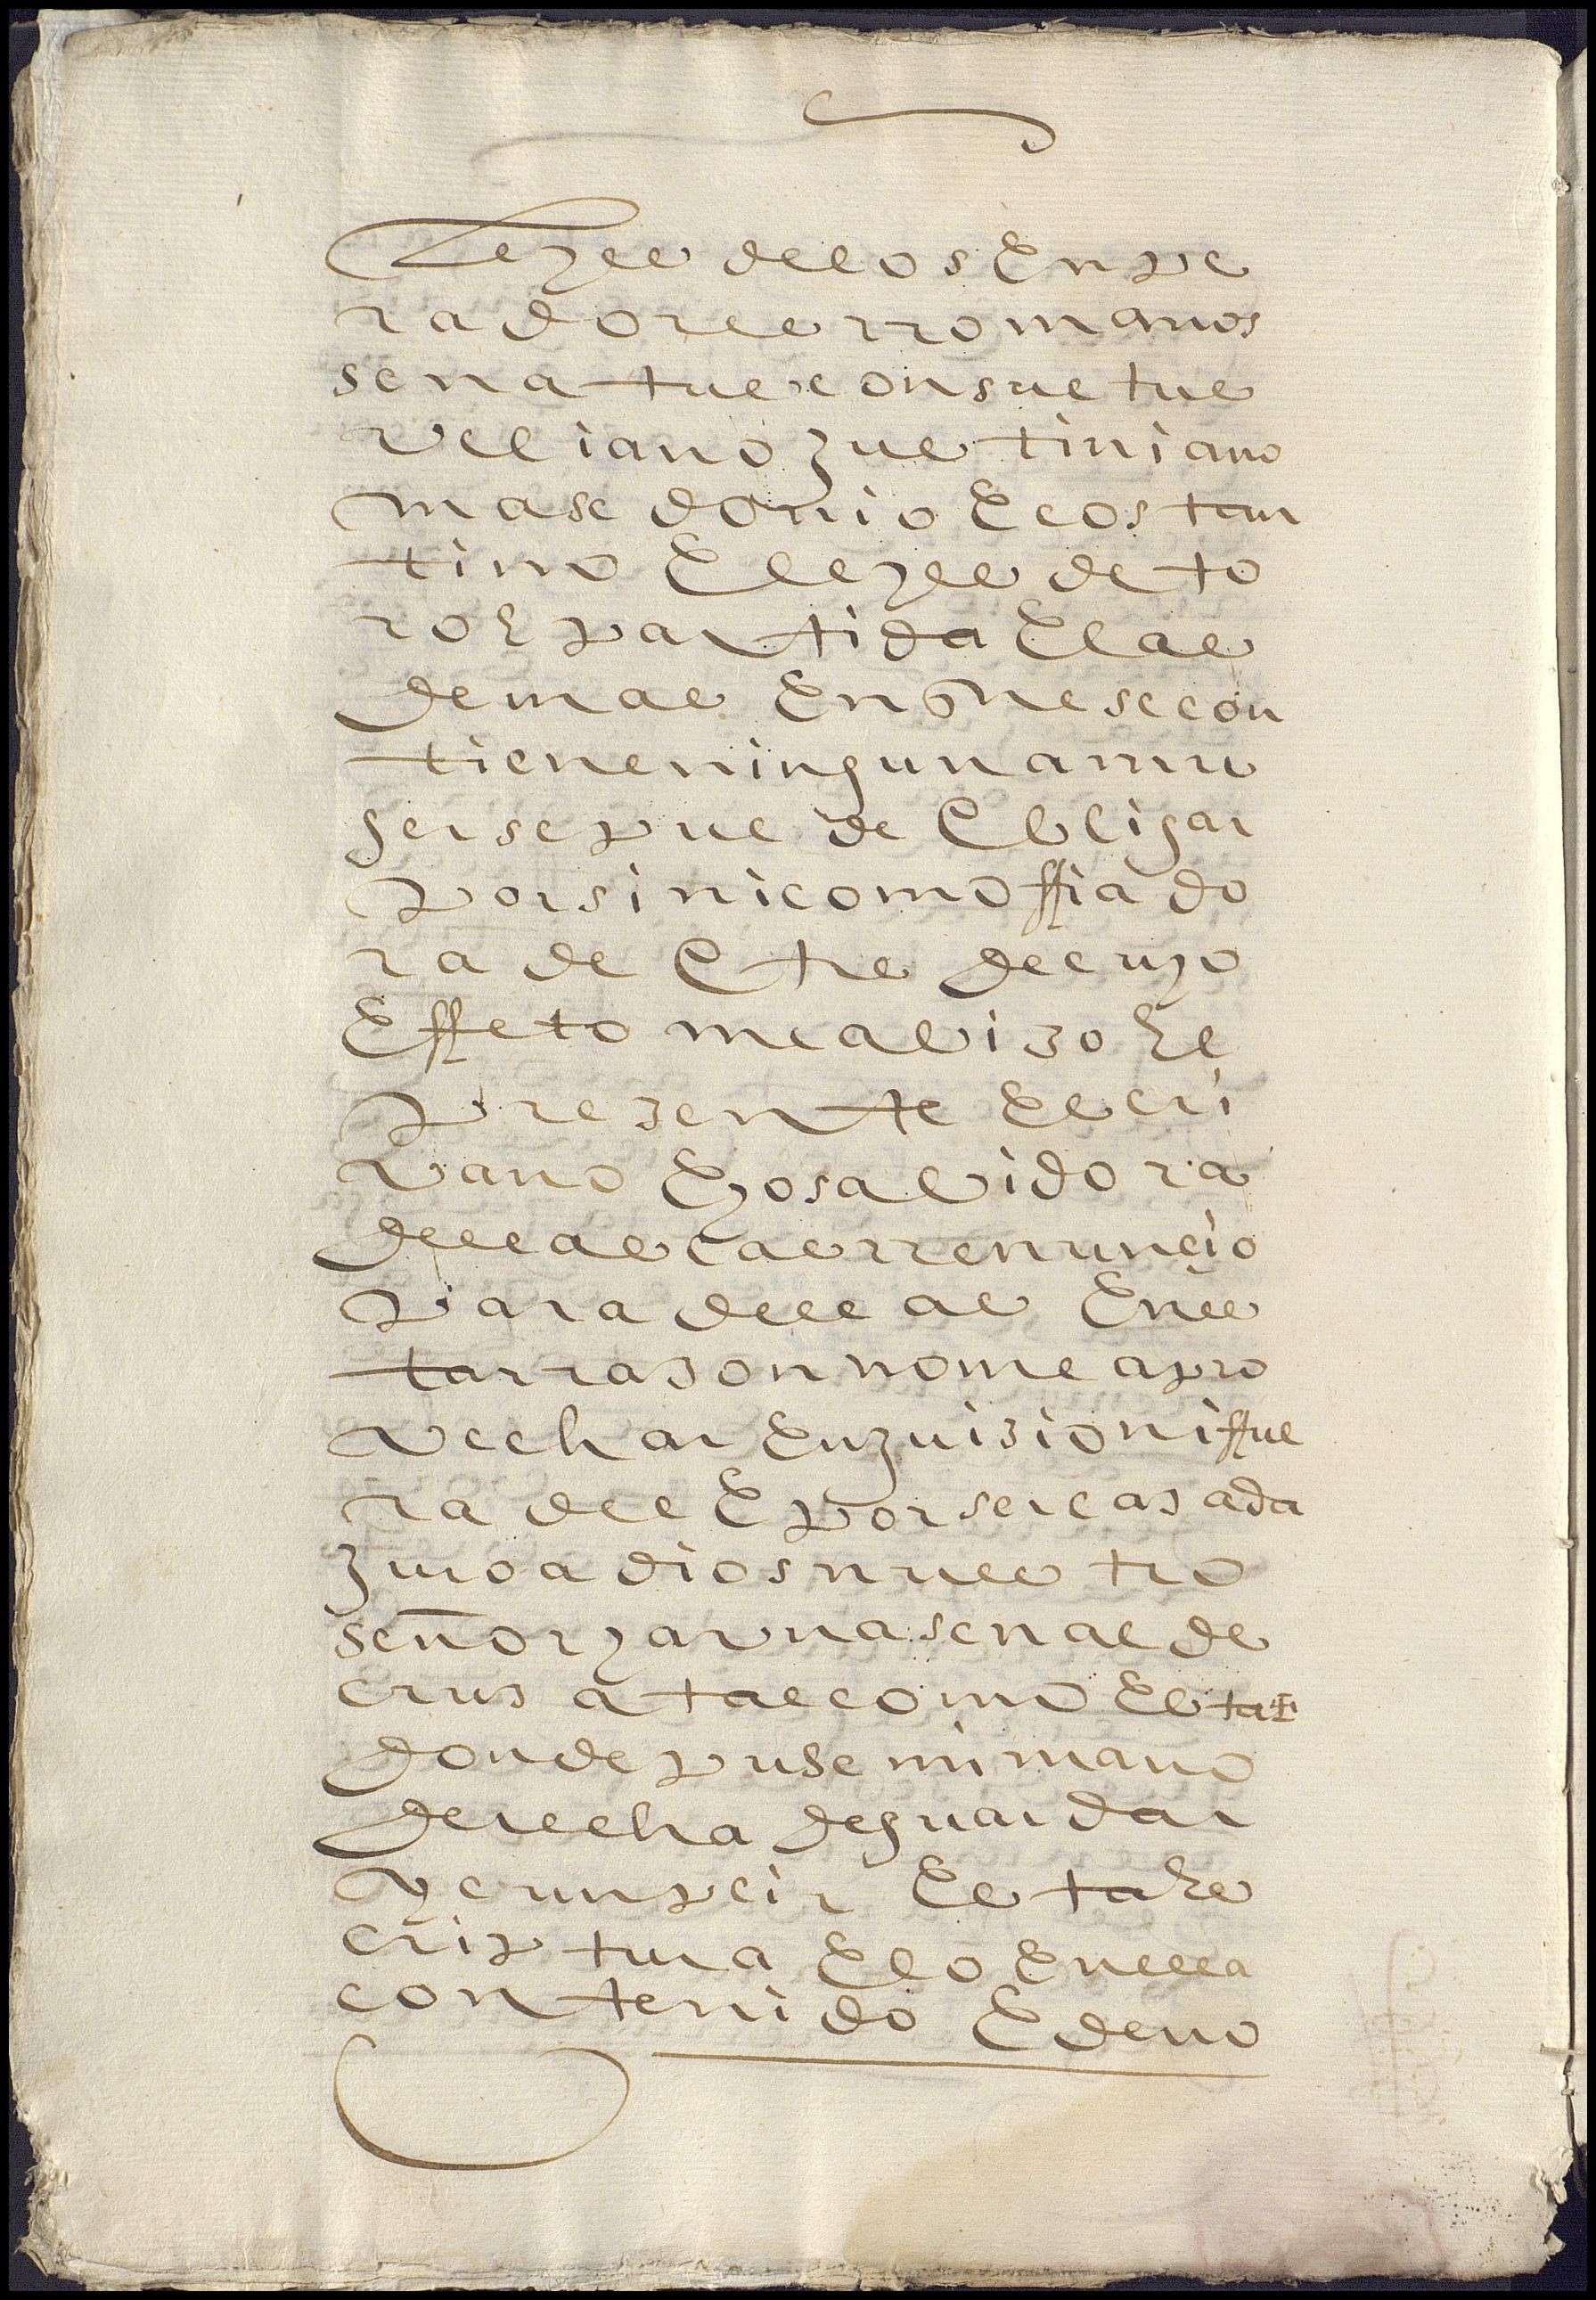 Leyes de los Enpe
radores rromanos
senatus consuetus
veliano Justiniano
masedonio E costan
tino E leyes de to
ro E partida E las
demas En que se con
tiene ninguna mu
ger se puede obligar
por si ni como ffiado
ra de otre de cuyo
Effeto me abizo El
prezente Escri
vano E yo sabidora
dellas las rrenuncio
para dellas En es
ta rrazon no me apro
vechar En Juizio ni ffue
ra del E por ser casada
Juro a dios nuestro
señor y a una senal de
crus a tal como Esta +
donde puse mi mano
derecha de guardar
y cunplir Esta Es
criptura E lo En ella
contenido E de no